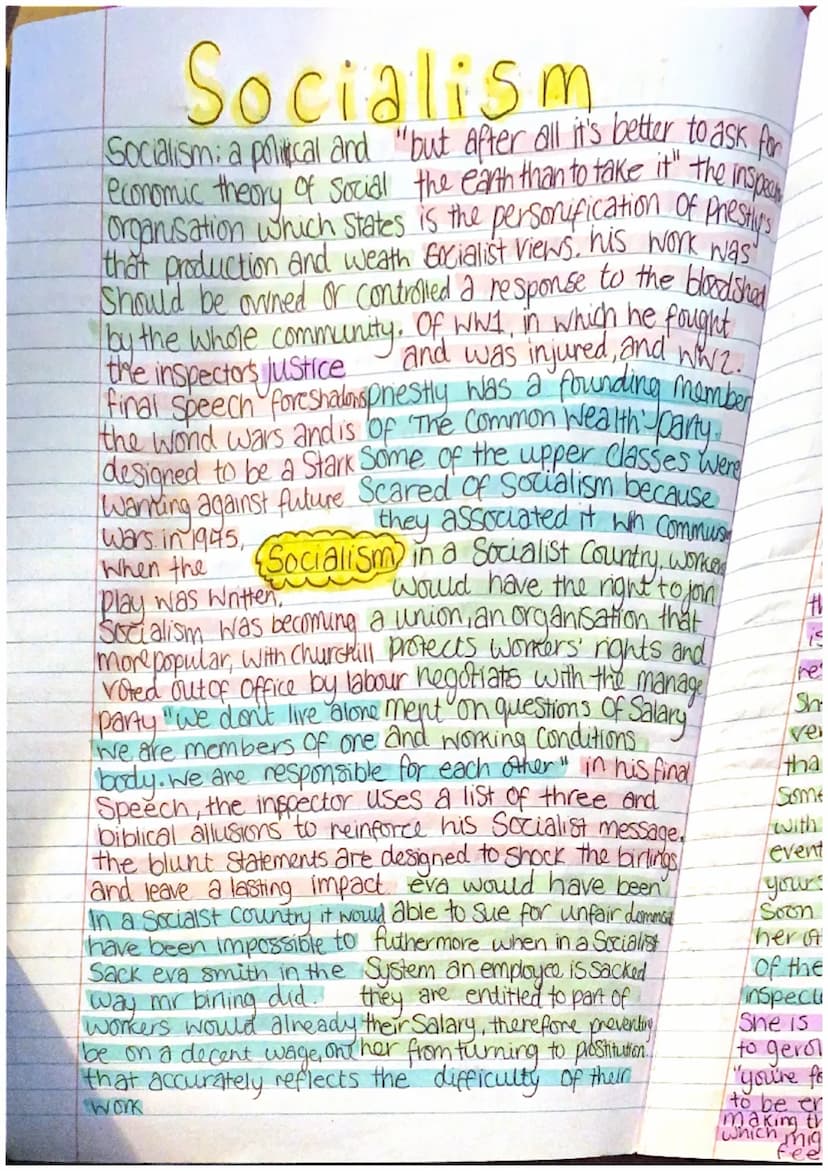 Socialism
Socialism: a political and
economic theory of social
organisation which states
that production and weath
should be owned or controlled
by the whole community.
"but after all it's better to ask for
the earth than to take it" the inspector
is the personification of priestly's
socialist views. his work was
a response to the bloodshed
of WW1, in which he fought
and was injured, and WW2.
the inspector's justice
final speech foreshadows
the world wars and is
designed to be a stark
warning against future
wars. in 1945,
when the
play was written,
socialism was becoming
more popular, with churchill
voted out of office by labour
party
priestly was a founding member
of 'The Common Wealth' party.
Some of the upper classes were
scared of socialism because
they associated it with
Socialism
in a socialist country, workers
would have the right to join
a union, an organisation that
protects workers' rights and
negotiats with the manage
ment on questions of salary
and working conditions
"we don't live alone
we are members of one
body. we are responsible for each other"
in his final
speech, the inspector uses a list of three and
biblical allusions to reinforce his socialist message.
the blunt statements are designed to shock the birlings
and leave a lasting impact
In a socialst country it would
have been impossible to
sack eva smith in the
way mr birling did.
workers would already
be on a decent wage, one
that accurately reflects the difficulty of their
work
eva would have been
able to sue for unfair
futhermore when in a socialist
system an employee is sacked
they are entitled to part of
their salary, therefore preventing
her from turning to prostitution.
th
is
re
Sh
ver
tha
Some
with
event
yours
Soon
her of
of the
inspect
She is
to gerol
"you're fo
to be er
making th
which mig
fee